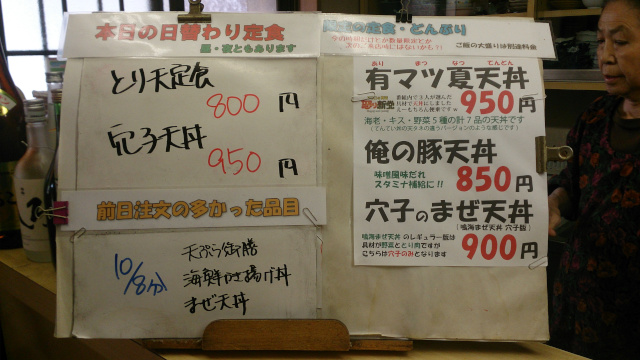 本日の日替わり定食
昼・夜ともあります
とり天定食
800円
穴子天丼
950円
前日注文の多かった品目
10/8分
天ぷら御膳
海鮮かき揚げ丼
まぜ天丼
の定食・どんぶり
ご飯の大盛りは別途料金
あり まつ なつ てんどん
有マツ夏天丼
950円
具材で天丼にしました
海老・キス・野菜5種の計7品の天丼です
俺の豚天丼
味噌風味だれ
スタミナ補給に!!
850円
穴子のまぜ天丼
(鳴海まぜ天丼 穴子版)
鳴海まぜ天丼 のレギュラー版は
具材が野菜ととり肉ですが
こちらは穴子のみとなります
900円